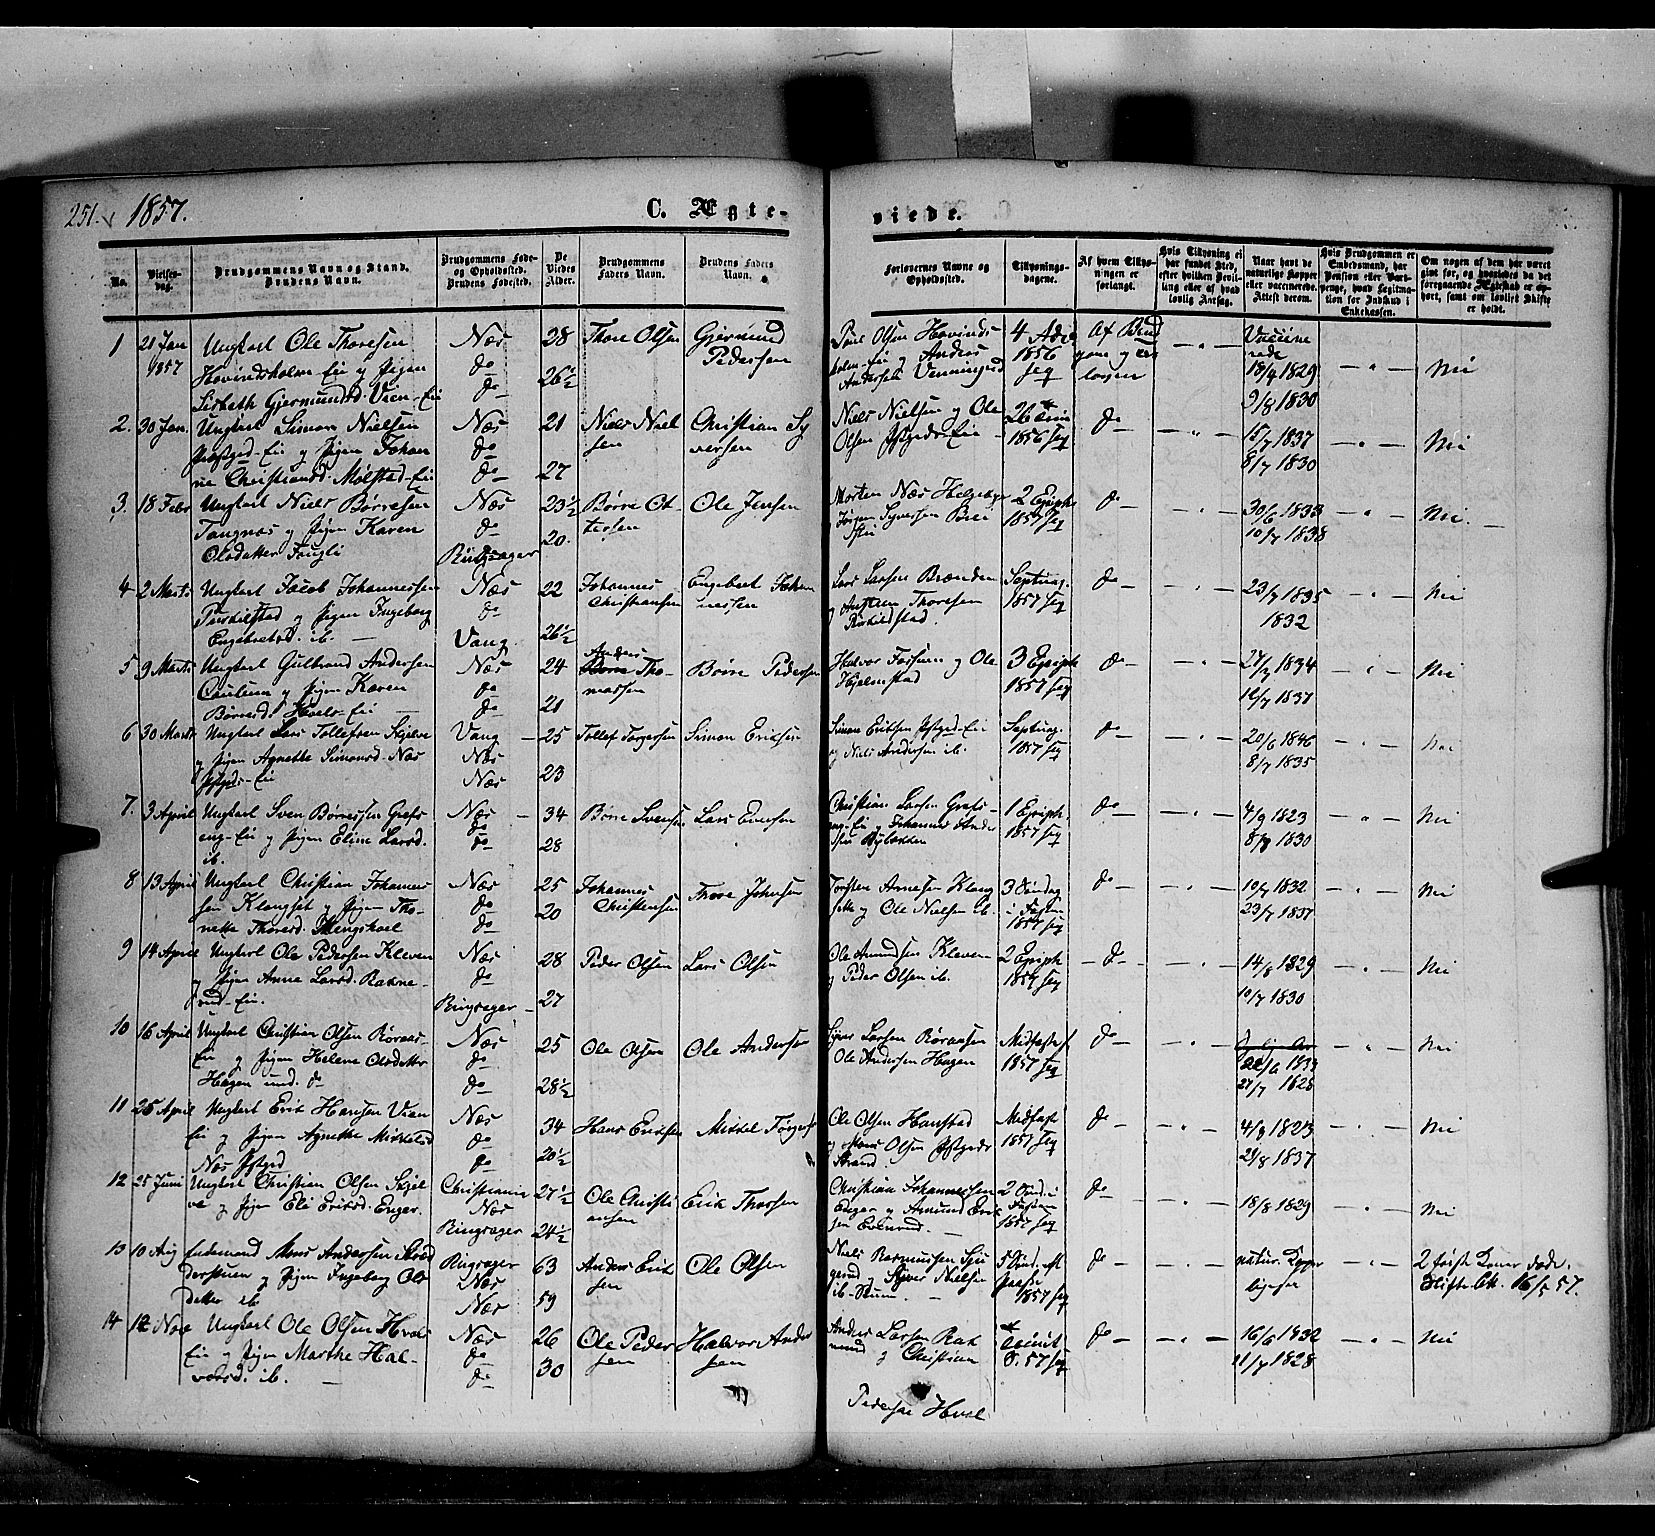 251. 1857.
C. Ægte-
viede.
No.
Vielses-
dag.
Brudgommens Navn og Stand.
Brudens Navn.
Brudgommens Føde-
og Opholdssted.
Brudens Fødested.
De
Viedes
Alder.
Brudgommens
Faders Navn.
Brudens Faders
Navn.
Forlovernes Navne og
Opholdssted.
Tillysnings-
dagene.
Af hvem Tillys-
ningen er
forlangt.
Hvis Tillysning ei
har fundet Sted,
efter hvilken Bevil-
ling eller af hvad
lovlig Aarsag.
Naar havt de
naturlige Kopper
eller vaccinerede.
Attest derom.
Hvis Brudgommen er
Embedsmand, har
Pension eller Vart-
penge, hvad Legitima-
tion for Indskud i
Enkekassen.
Om nogen af dem har været
gift før, og hvorledes da det
foregaaende Ægteskab er op-
hørt, samt om lovligt Skifte
er holdt.
1 21 Jan 1857
Ungkarl Ole Thoresen
Hovindsholm-Eie og Pigen
Lisbeth Gjermundsd. Vien-Eie
Næs
do
do
28
26½
Thore Olsen
Gjermund
Pedersen
Poul Olsen Hovinds-
holm-Eie og Anders
Andersen Venningrud
4 Adv
1856
seq
Af Brud
gom og For
lover
Vaccine
rede
18/4 1829
9/8 1830
Nei
2. 30 Jan.
Ungkarl Simon Nielsen
Præstgd-Eie og Pigen Johan
ne Christiansd. Molstad-Eie
Næs
do
do
21
27
Niels Niel
sen
Christian Sy
versen
Niels Nielsen og Ole
Olsen Pstgds-Eie
1856 seq
do
15/7 1837
8/7 1830
Nei
3. 18 Febr
Ungkarl Niels Børresen
Tangnæs og Pigen Karen
Olsdatter Fougli
Næs
do
Ringsager
23½
20.
Børre Ot-
tersen
Ole Jensen
Morten Næs Helgeby
Jørgen Syversen
2 Epiph
1857 seq
do
30/6 1833
10/7 1838
Nei.
4 2 Marts
Ungkarl Jacob Johannessen
Torkilstad og Pigen Ingeborg
Engebretsd. ib.
Næs
do
Vang
22
26½
Johannes
Christiansen
Engebret Johan
nessen
Lars Larsen Brænden
og Thoresen
Septuag.
1857 seq
do
23/7 1835
1832
Nei
5 9 Marts
Ungkarl Gulbrand Andersen
og Pigen Karen
Børresd. Hvels-Eie
Næs
do
do
24
21
Anders
Tho-
massen
Børre Pedersen
Halvor Forsum og Ole
Hjelmstad
3 Epiph
1857 seq
do
27/7 1834
12/7 1837
Nei
6 30 Marts
Ungkarl Lars Tollefsen Skjelve
og Pigen Agnethe Simonsd. Næs
Pstgds-Eie
Vang
Næs
Næs
25
23
Tollef Torgersen
Simon Eriksen
Simon Eriksen Pstgd-Eie
og Niels Andersen ib.
Septuag.
1857 seq
do
20/6 1846
8/7 1835
Nei
7. 3 April
Ungkarl Sven Børresen Grefs-
eng-Eie og Pigen Eline Larsd.
ib.
Næs
do
do
34
28
Børre Svensen
Lars Evensen
Christian Larsen Grefs-
eng-Eie og Johannes Ander
sen Bybakken
1 Epiph.
1857 seq
do
4/9 1823
8/9 1830
Nei
8 13 April
Ungkarl Christian Johannes
sen Klangset og Pigen Tho-
nette Thoresd. Mengshoel
Næs
do
do
25
20
Johannes
Christensen
Thore Johnsen
Torsten Arnesen Klang
sette og Ole Nielsen ib.
3 Søndag
i Fasten
1857 seq
do
10/7 1832
23/7 1837
Nei
9 14 April
Ungkarl Ole Pedersen Kleven
og Pigen Anne Larsd. Rakne-
rud-Eie.
Næs
do
Ringsager
28
27
Peder Olsen
Lars Olsen
Ole Amundsen Kleven
og Peder Olsen ib.
2 Epiph
1857 seq
do
14/8 1829
10/7 1830
Nei
10 16 April
Ungkarl Christian Olsen Røraas-
Eie og Pigen Helene Olsdatter
Hagen und. do
Næs
do
do
25
28½
Ole Olsen
Ole Andersen
Syver Larsen Røraasen
Ole Andersen Hagen
Midfaste
1857 seq
do
27/7 1828
Nei
11 25 April
Ungkarl Erik Hansen Vien
Eie og Pigen Agnethe Mikkelsd
Næs Pstgd
Næs
do
do
34
20½
Hans Eriksen
Mikkel Torgers
Ole Olsen Hanstad
og Mons Olsen Pstgds
Strand.
Midfaste
1857 seq
do
4/9 1823
21/8 1837
Nei
12 25 Juni
Ungkarl Christian Olsen Skjel
ve og Pigen Eli Eriksd. Enger.
Christiania
Næs
Ringsager
27½
24½
Ole Christi
ansen
Erik Thorsen
Christian Johannessen
Enger og Amund Erik
sen Evenrud.
2 Sønd. i
Fasten
1857 seq
do
18/8 1829
Nei
13 10 Aug
Enkemand Mons Andersen Skræd
derstuen og Pigen Ingeborg Ols
datter ib
Ringsager
Næs
Næs
63
59
Anders Erik
sen
Ole Olsen
Niels Rasmussen Sju
gerud og Syver Nielsen
ib-
5 Sønd. eft
Paaske
1857 seq
do
natur. Kopp
2 første Koner døde.
Skifte Att. 16/5 57.
14 12 Nov
Ungkarl Ole Olsen Hvels
Eie og Pigen Marthe Hal-
vorsd. ib.
Næs
do
do
26
30
Ole Peder
sen
Halvor Ander
sen
Anders Larsen Rak
nerud
og Christian
Pedersen Hvel
Trinit
57 seq
do
16/6 1832
11/7 1828
Nei